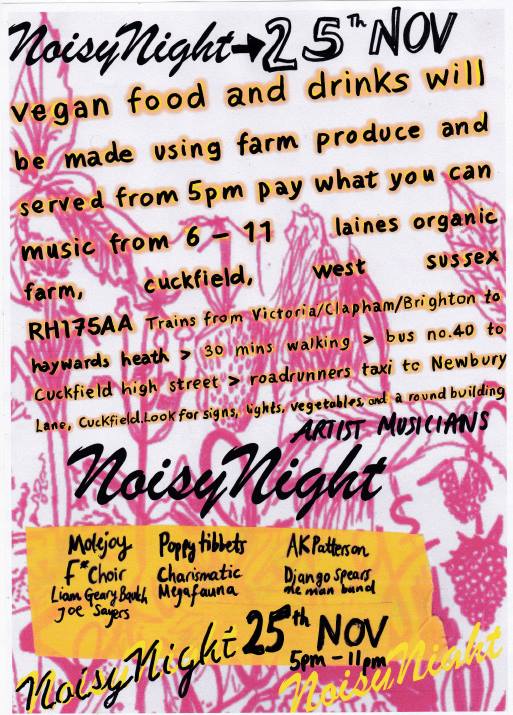 NoisyNight → 25Th NOV
vegan food and drinks will
be made using farm produce and
served from 5pm pay what you can
music from 6 - 11 laines organic
farm, cuckfield, west sussex
RH175AA Trains from Victoria/Clapham/Brighton to
haywards heath > 30 mins walking > bus no.40 to
Cuckfield high street > roadrunners taxi to Newbury
Lane, Cuckfield. Look for signs, lights, vegetables, and a round building
ARTIST MUSICIANS
NoisyNight
Molejoy Poppy tibbets AK Patterson
F*Choir Charismatic Django Spears
Liam Geary Megafauna one man band
Joe Sayers
NoisyNight 25th NOV
5pm - 11pm
NoisyNight